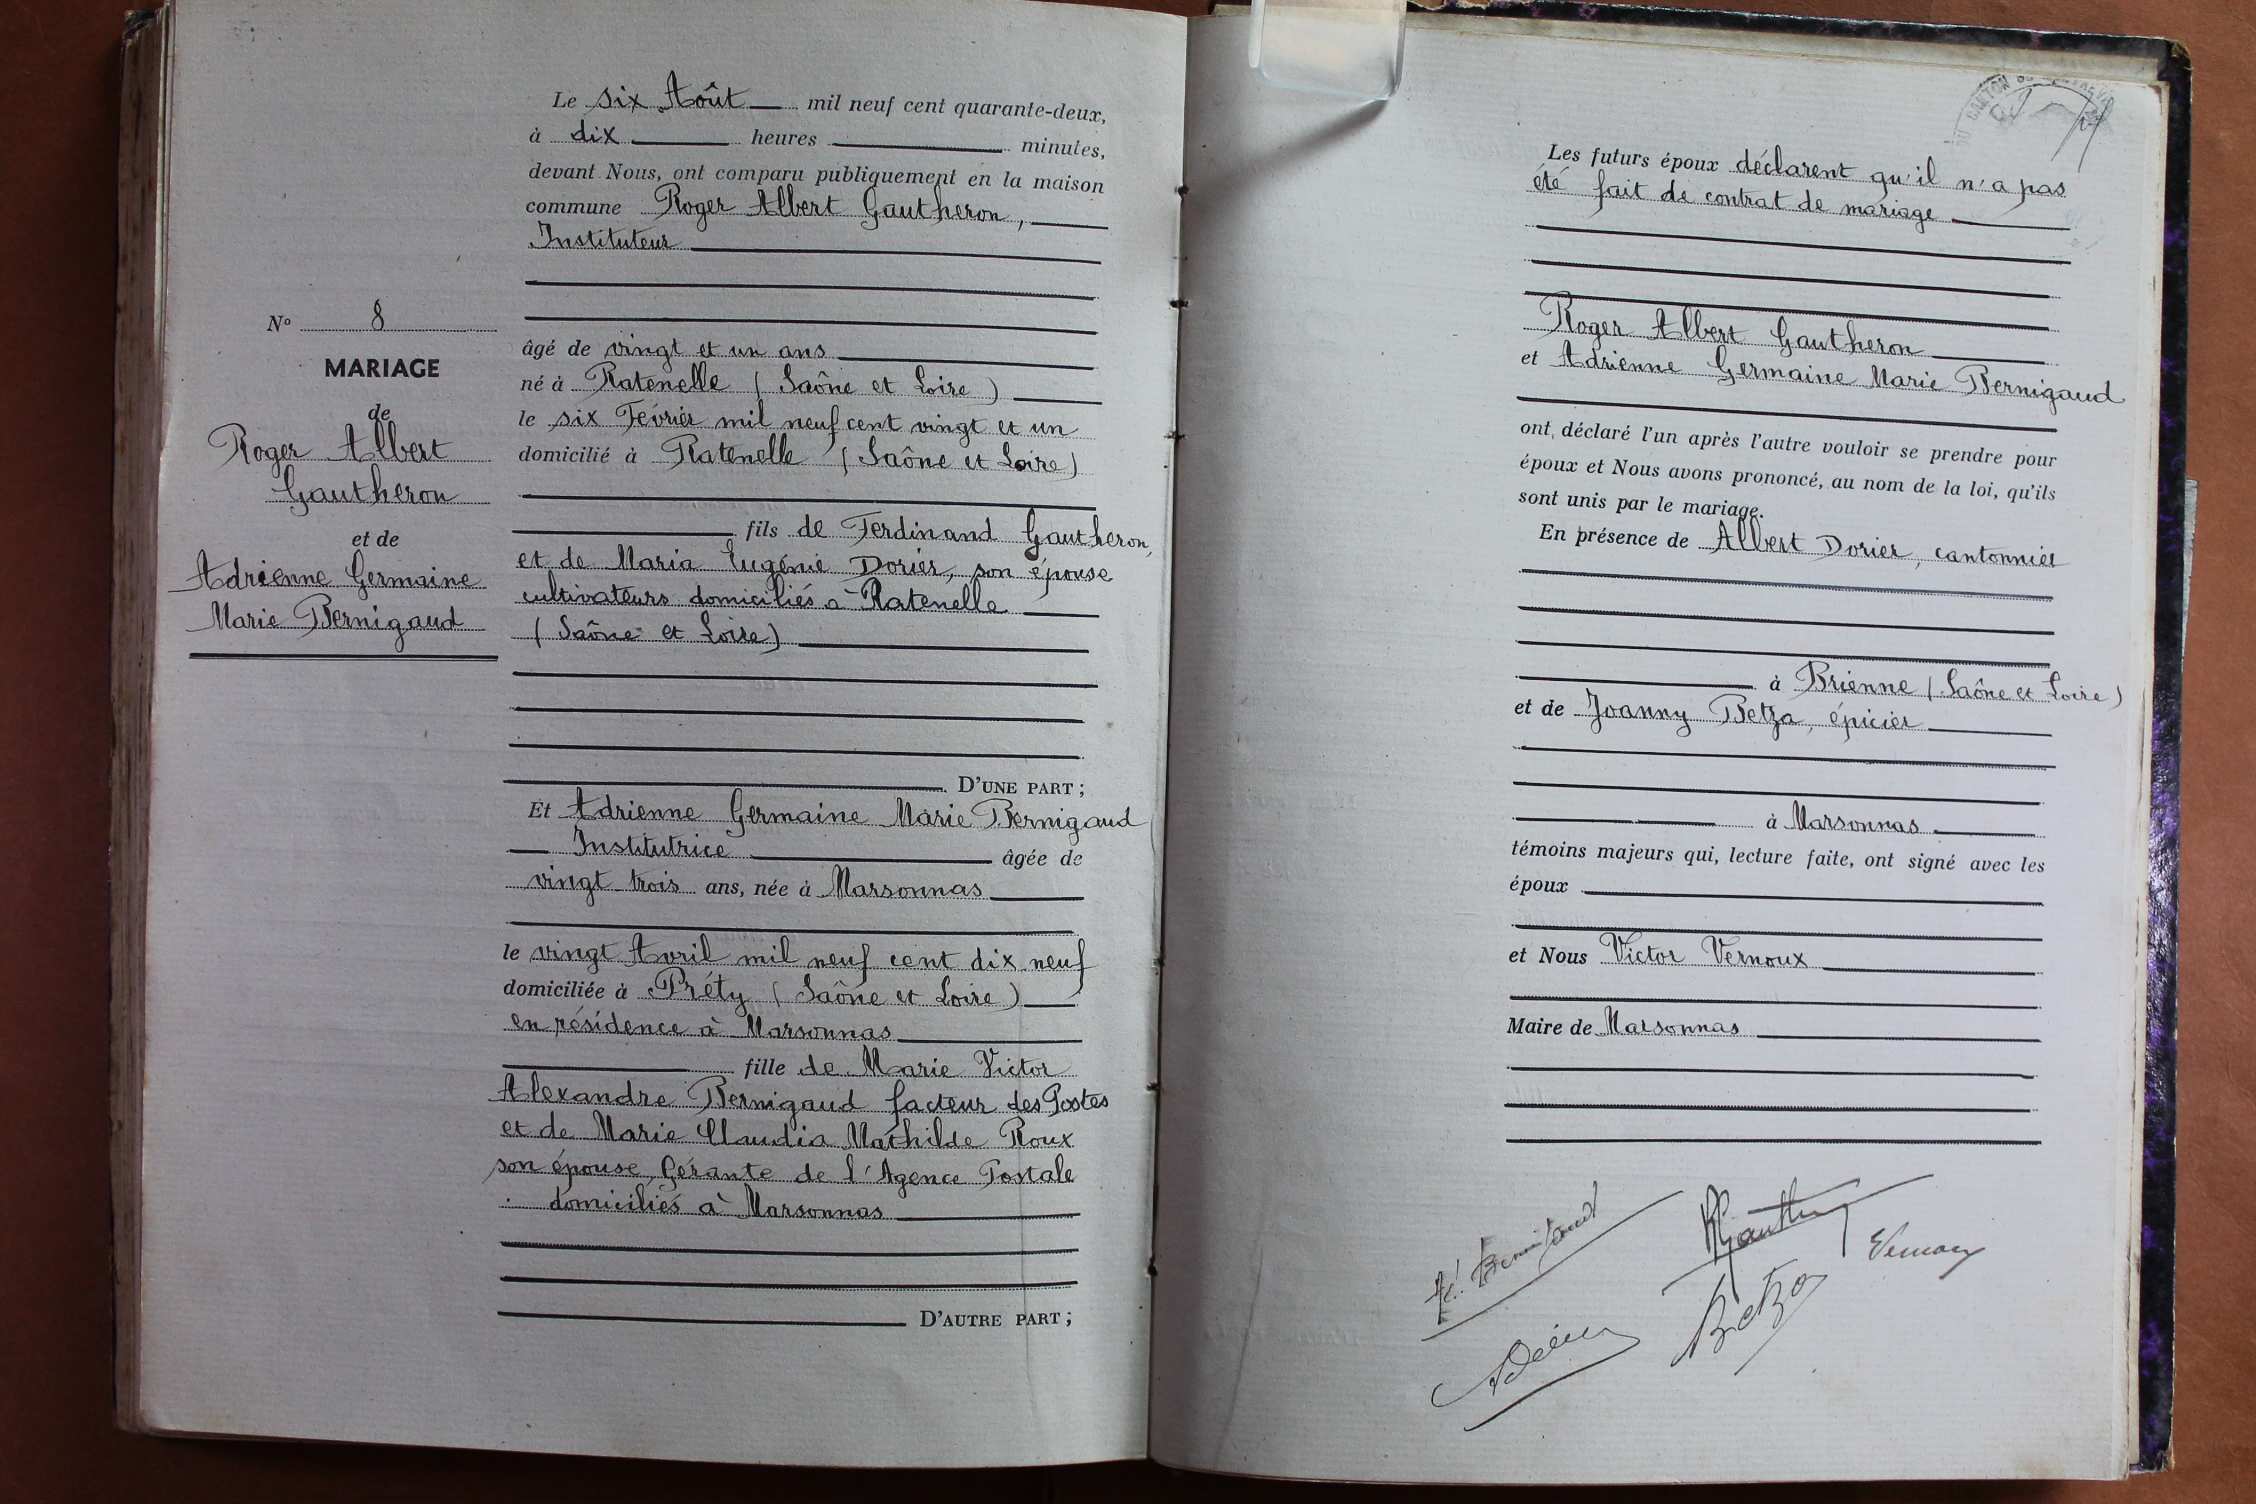 Le six Août mil neuf cent quarante-deux,
à dix heures minutes,
devant Nous, ont comparu publiquement en la maison
commune Roger Albert Gautheron,
Instituteur
âgé de vingt et un ans
né à Ratenelle (Saône et Loire)
le six Février mil neuf cent vingt et un
domicilié à Ratenelle (Saône et Loire)
fils de Ferdinand Gautheron,
et de Maria Eugénie Dorier, son épouse
cultivateurs domiciliés à Ratenelle
(Saône et Loire)
D'UNE PART ;
Et Adrienne Germaine Marie Bernigaud
Institutrice âgée de
vingt trois ans, née à Marsonnas
le vingt Avril mil neuf cent dix neuf
domiciliée à Préty (Saône et Loire)
en résidence à Marsonnas
fille de Marie Victor
Alexandre Bernigaud facteur des Postes
et de Marie Claudia Mathilde Roux
son épouse, Gérante de l'Agence Postale
domiciliés à Marsonnas
D'AUTRE PART ;
No 8
MARIAGE
de
Roger Albert
Gautheron
et de
Adrienne Germaine
Marie Bernigaud
DU CANTON
Les futurs époux déclarent qu'il n'a pas
été fait de contrat de mariage
Roger Albert Gautheron
et Adrienne Germaine Marie Bernigaud
ont déclaré l'un après l'autre vouloir se prendre pour
époux et Nous avons prononcé, au nom de la loi, qu'ils
sont unis par le mariage.
En présence de Albert Dorier, cantonnier
à Brienne (Saône et Loire)
et de Joanny Betza, épicier
à Marsonnas
témoins majeurs qui, lecture faite, ont signé avec les
époux
et Nous Victor Vernoux
Maire de Marsonnas
Bernigaud
Vernoux